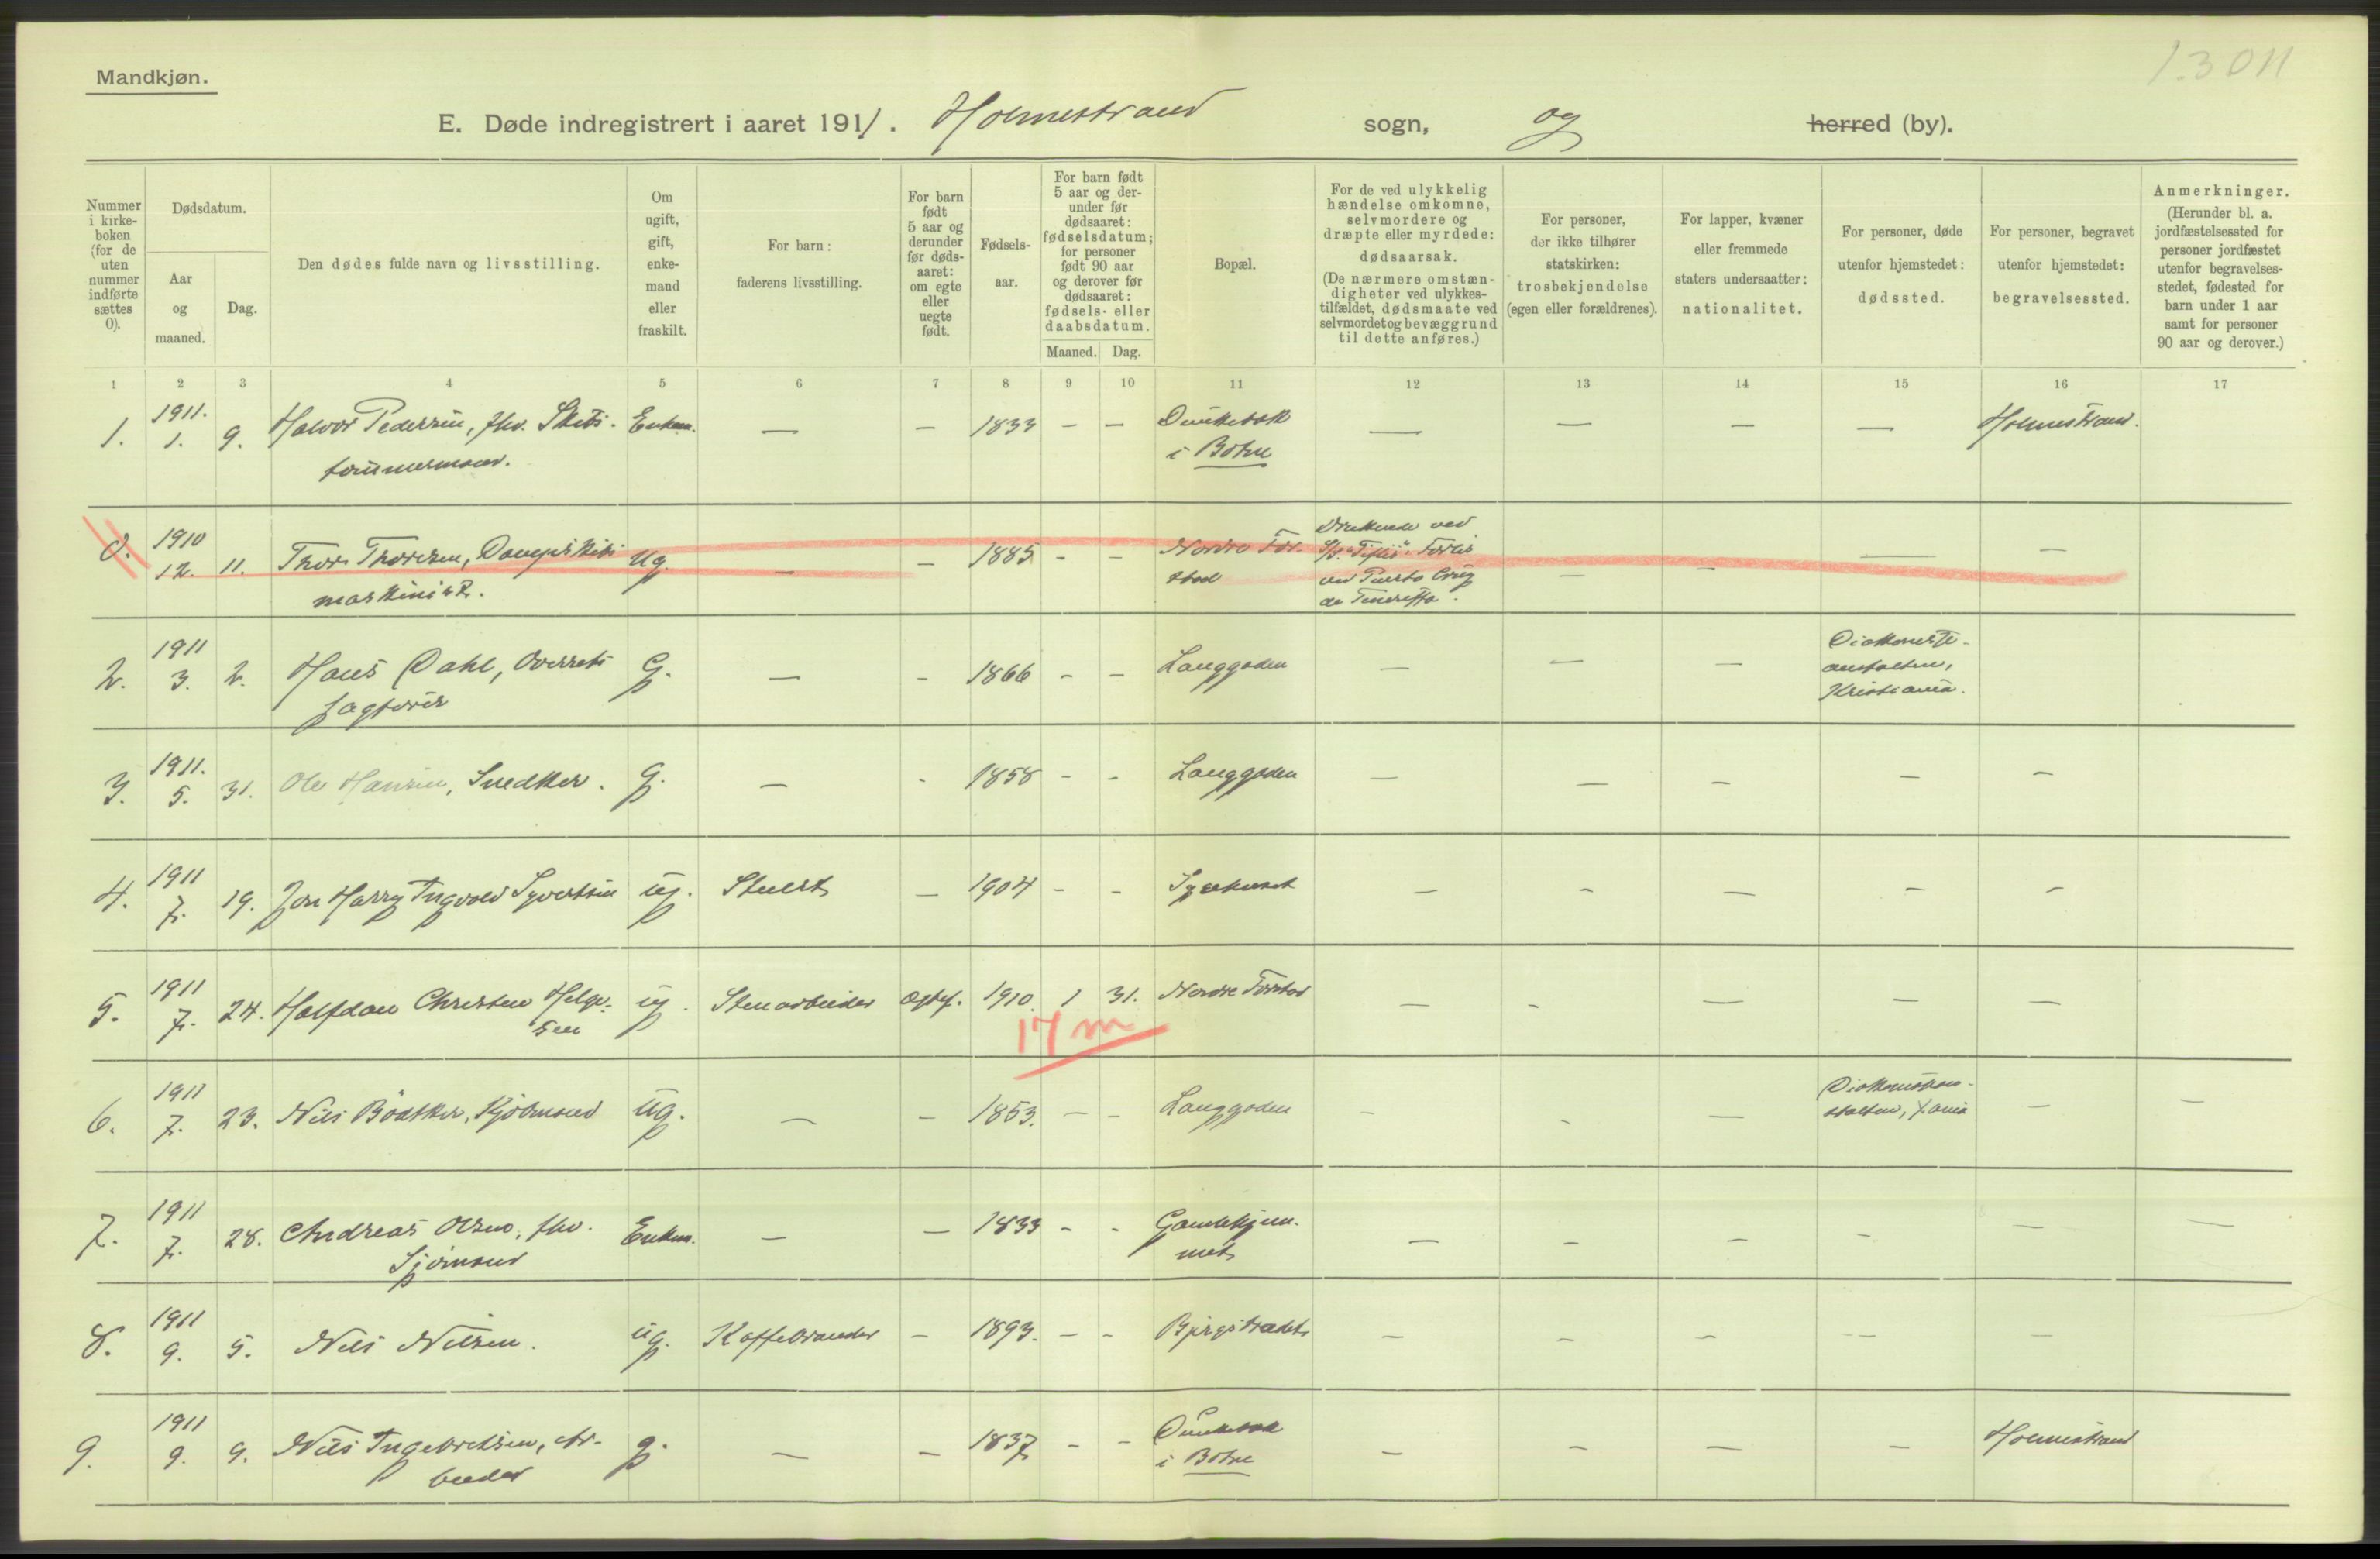 13011
Mandkjøn.
E. Døde indregistrert i aaret 1911. Holmestrand sogn, og herred (by).
Nummer i kirke-boken (for de uten nummer indførte sættes 0).
Dødsdatum.
Aar og maaned.
Dag.
Den dødes fulde navn og livsstilling.
Om ugift, gift, enke-mand eller fraskilt.
For barn: faderens livsstilling.
For barn født 5 aar og derunder før døds-aaret: om egte eller uegte født.
Fødsels-aar.
For barn født 5 aar og der-under før dødsaaret: fødselsdatum; for personer født 90 aar og derover før dødsaaret: fødsels- eller daabsdatum.
Maaned. Dag.
Bopæl.
For de ved ulykkelig hændelse omkomne, selvmordere og dræpte eller myrdede: dødsaarsak. (De nærmere omstæn-digheter ved ulykkes-tilfældet, dødsmaate ved selvmordet og bevæggrund til dette anføres.)
For personer, der ikke tilhører statskirken: trosbekjendelse (egen eller forældrenes).
For lapper, kvæner eller fremmede staters undersaatter: nationalitet.
For personer, døde utenfor hjemstedet: dødssted.
For personer, begravet utenfor hjemstedet: begravelsessted.
Anmerkninger. (Herunder bl. a. jordfæstelsessted for personer jordfæstet utenfor begravelses-stedet, fødested for barn under 1 aar samt for personer 90 aar og derover.)
1 2 3 4 5 6 7 8 9 10 11 12 13 14 15 16 17
1. 1911. 1. 9. Halvor Pedersen, fhv. Skibs- Enkem. — — 1833 - - Dunkebæk — — — — Holmestrand.
tømmermand. i Botne
0. 1910 12. 11. Thor Thoresen, Dampskibs Ug. — — 1885 - - Nordre For- Druknede ved — — — —
maskinist. stad S/S. "Tiflis" Forlis
ved Puerto Cruz
de Teneriffa.
2. 1911 3. 2. Hans Dahl, Overrets G. — - 1866 - - Langgaden — — — Diakonisse-
sagfører anstalten,
Kristiania.
3. 1911. 5. 31. Ole Hansen, Snedker. G. — - 1858 - - Langgaden — — — — —
4. 1911 7. 19. Jon Harry Ingvold Syvertsen ug. Stuert — 1904 - - Sygehuset — - — — -
5. 1911 7. 24. Halfdan Christen Helge- ug. Stenarbeider Ægtef. 1910. 1 31. Nordre Forstad — - — — —
sen 17 m
6. 1911 7. 23. Nils Bödtker, Kjøbmand Ug. — — 1853. - - Langgaden - - — Diakonissean- — —
stalten, Xania
7. 1911 7. 28. Andreas Olsen, fhv. Enkem. — — 1833 - - Gamlehjem- — — — - — —
Sjømand met
8. 1911 9. 5. Nils Nilsen. ug. Kaffebrænder - 1893. - - Bjergstrædet — - — -- —
9. 1911 9. 9. Nils Ingebretsen, Ar- g. — — 1837 - - Dunkebæk — — — — Holmestrand
beider i Botne